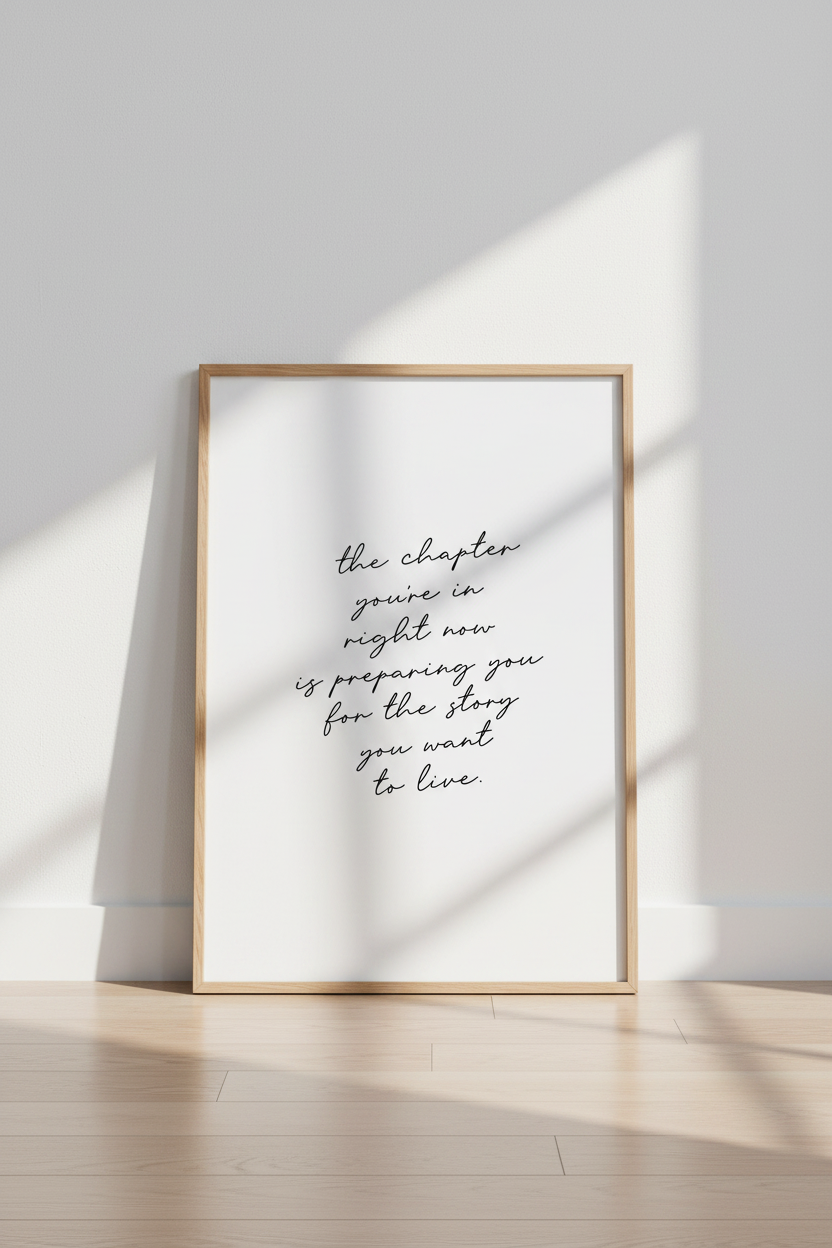 the chapter
you're in
right now
is preparing you
for the story
you want
to live.